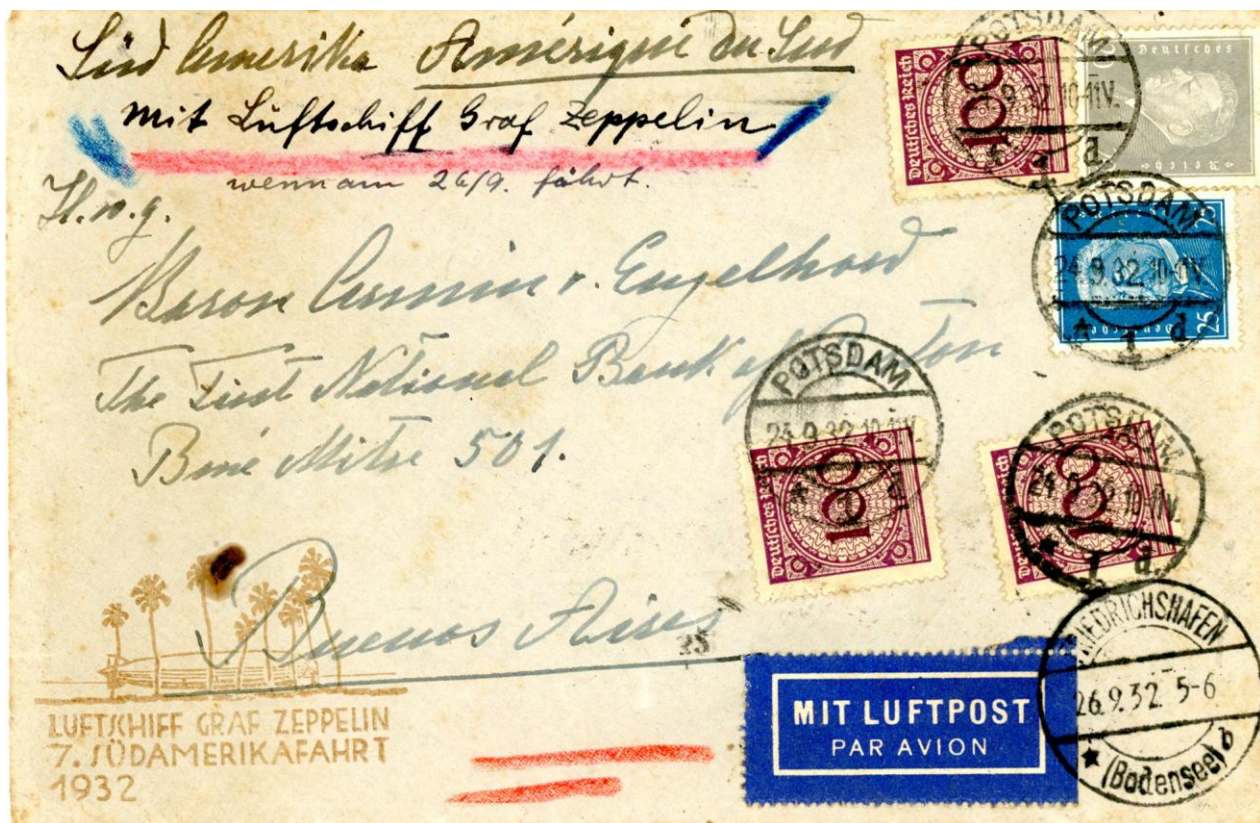 Süd Amerika Amérique du Sud
mit Luftschiff Graf Zeppelin
wenn am 26/9. fährt.
Baron Armin v. Engelhard
The First National Bank of Boston
Bmé Mitre 501.
Buenos Aires
25
LUFTSCHIFF GRAF ZEPPELIN
7. SÜDAMERIKAFAHRT
1932
MIT LUFTPOST
PAR AVION
POTSDAM
9.32.10-11V.
1 d
Deutsches Reich
100
Deutsches
Reich
POTSDAM
24.9.32.10-11V.
* 1 d
25
25
POTSDAM
24.9.32.10-11V.
Deutsches Reich
100
POTSDAM
24.9.32.10-11V.
* 1 d.
Deutsches Reich
100
FRIEDRICHSHAFEN
26.9.32. 5-6
* (Bodensee) b